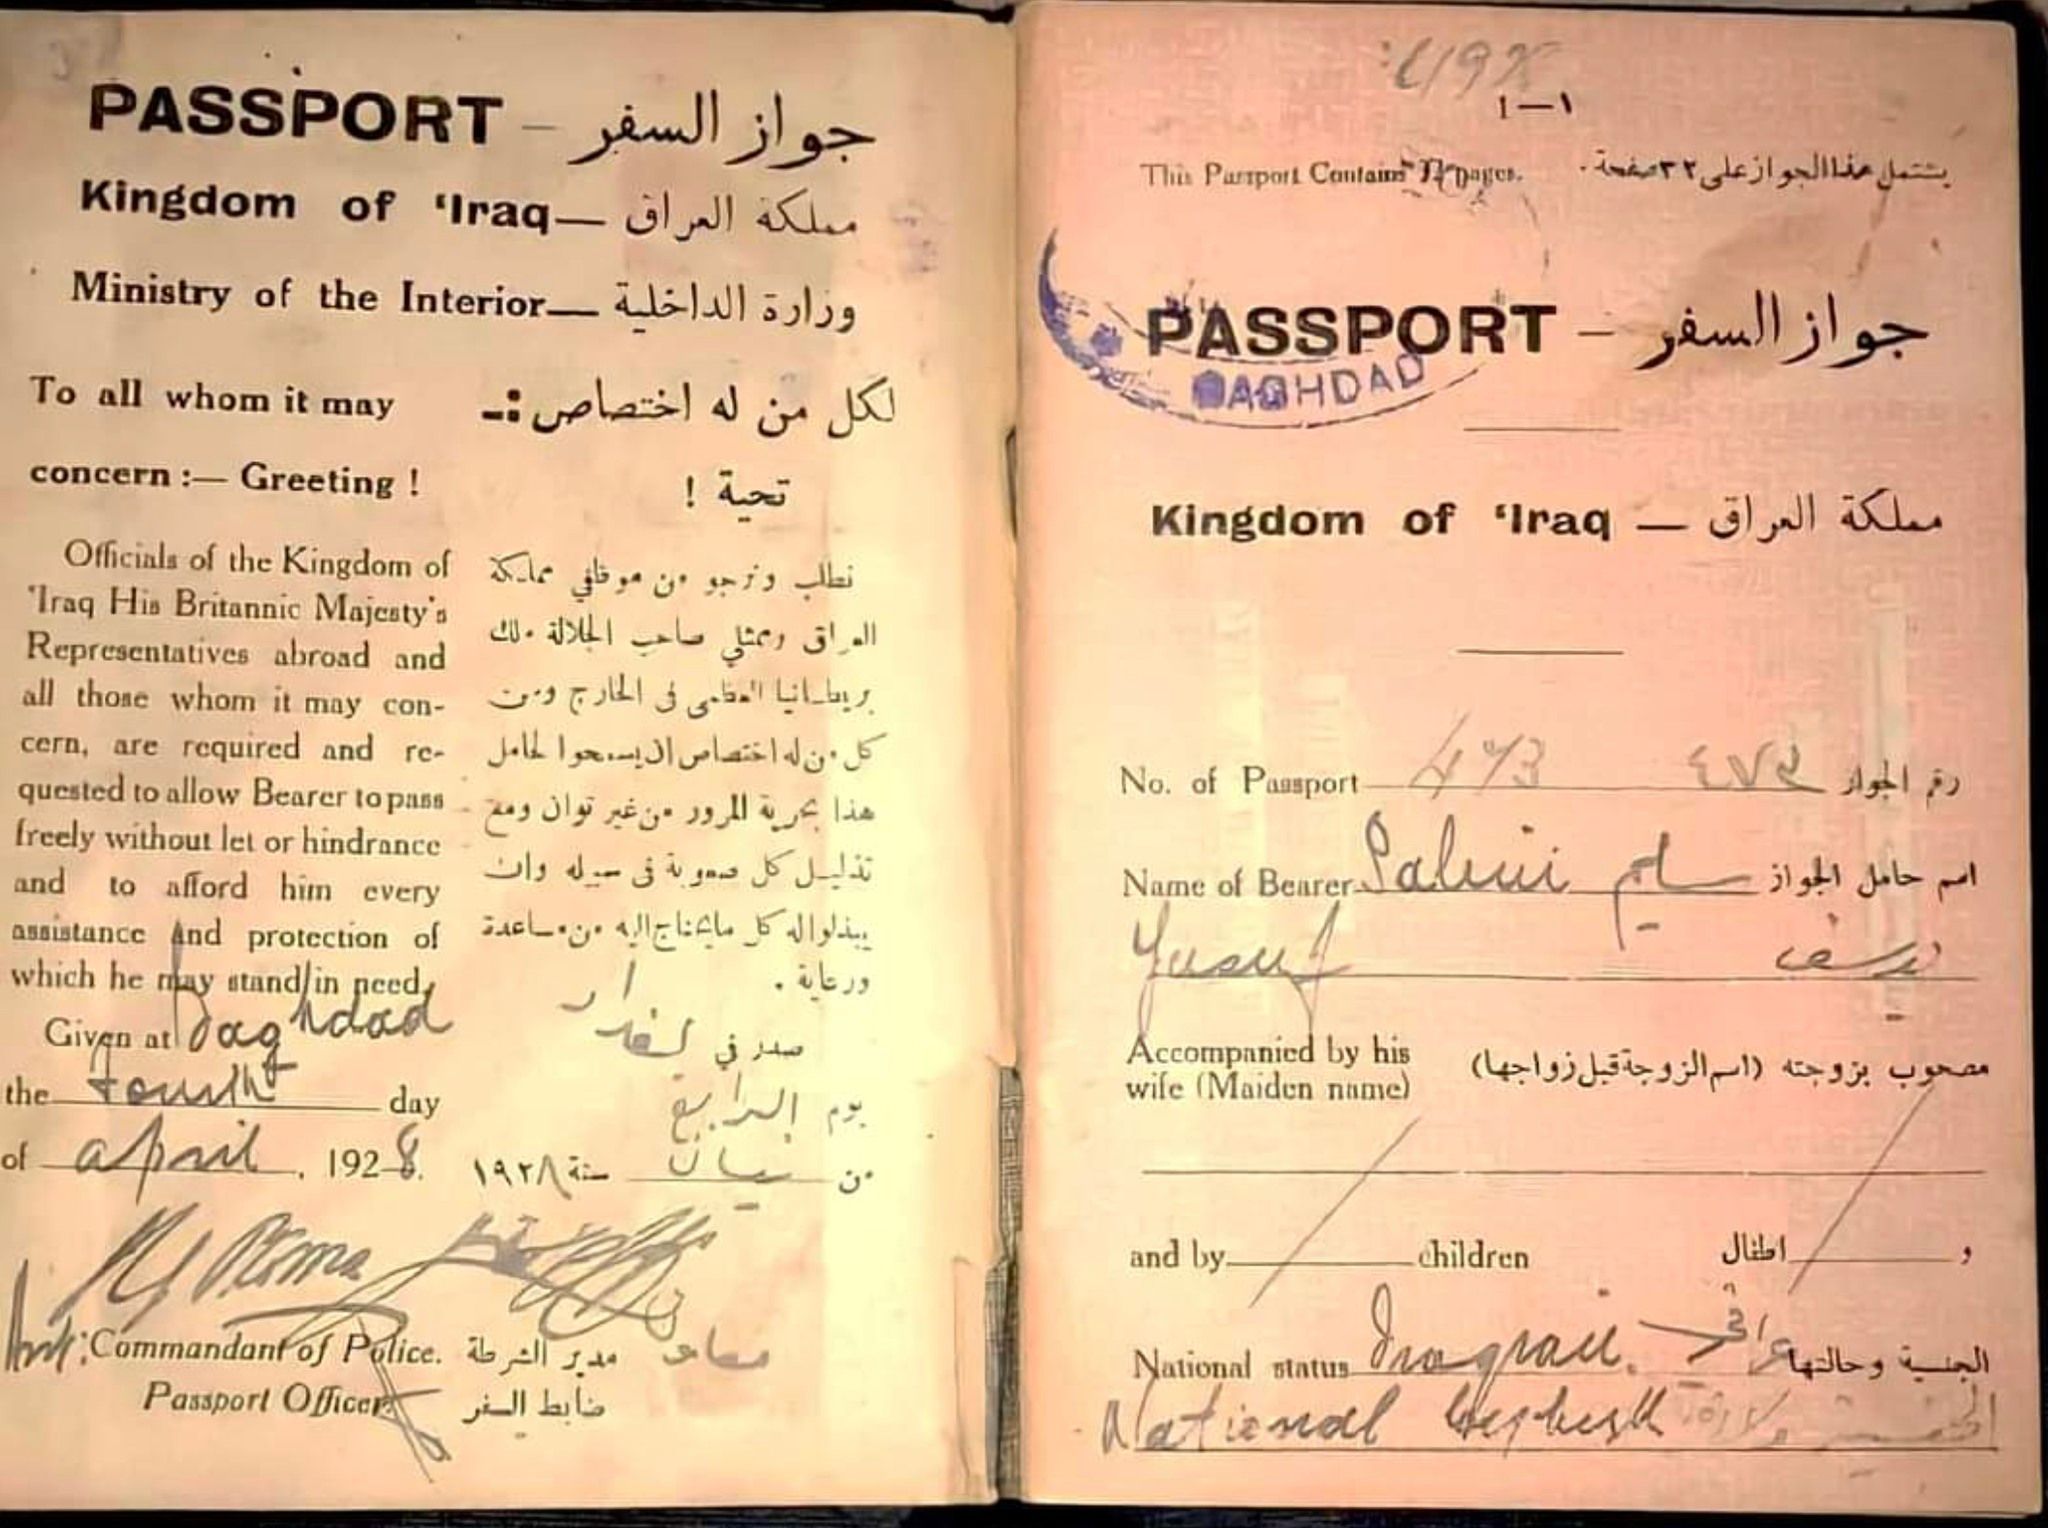 PASSPORT — جواز السفر
Kingdom of 'Iraq — مملكة العراق
Ministry of the Interior — وزارة الداخلية
To all whom it may
concern :— Greeting !
لكل من له اختصاص :-
تحية !
Officials of the Kingdom of
'Iraq His Britannic Majesty's
Representatives abroad and
all those whom it may con-
cern, are required and re-
quested to allow Bearer to pass
freely without let or hindrance
and to afford him every
assistance and protection of
which he may stand in need.
Given at Baghdad
the fourth day
of april. 1928.
نطلب ونرجو من موظفي مملكة
العراق وممثلي صاحب الجلالة ملك
بريطانيا العظمى فى الخارج ومن
كل من له اختصاص ان يسمحوا لحامل
هذا بحرية المرور من غير توان ومع
تذليل كل صعوبة فى سبيله وان
يبذلوا له كل مايحتاج اليه من مساعدة
ورعاية .
صدر في بغداد
يوم الرابع
من نيسان سنة ١٩٢٨
Commandant of Police. مدير الشرطة معاون
Passport Officer. ضابط السفر
1—١
This Passport Contains pages. يشتمل هذا الجواز على ٣٢ صفحة .
PASSPORT — جواز السفر
BAGHDAD
Kingdom of 'Iraq — مملكة العراق
No. of Passport 473 ٤٧٣ رقم الجواز
Name of Bearer Salim سليم اسم حامل الجواز
Yusuf يوسف
Accompanied by his
wife (Maiden name)
مصحوب بزوجته (اسم الزوجة قبل زواجها)
and by children اطفال و
National status Iraqian. عراقي الجنسية وحالتها
National by birth الجنسية ولادة